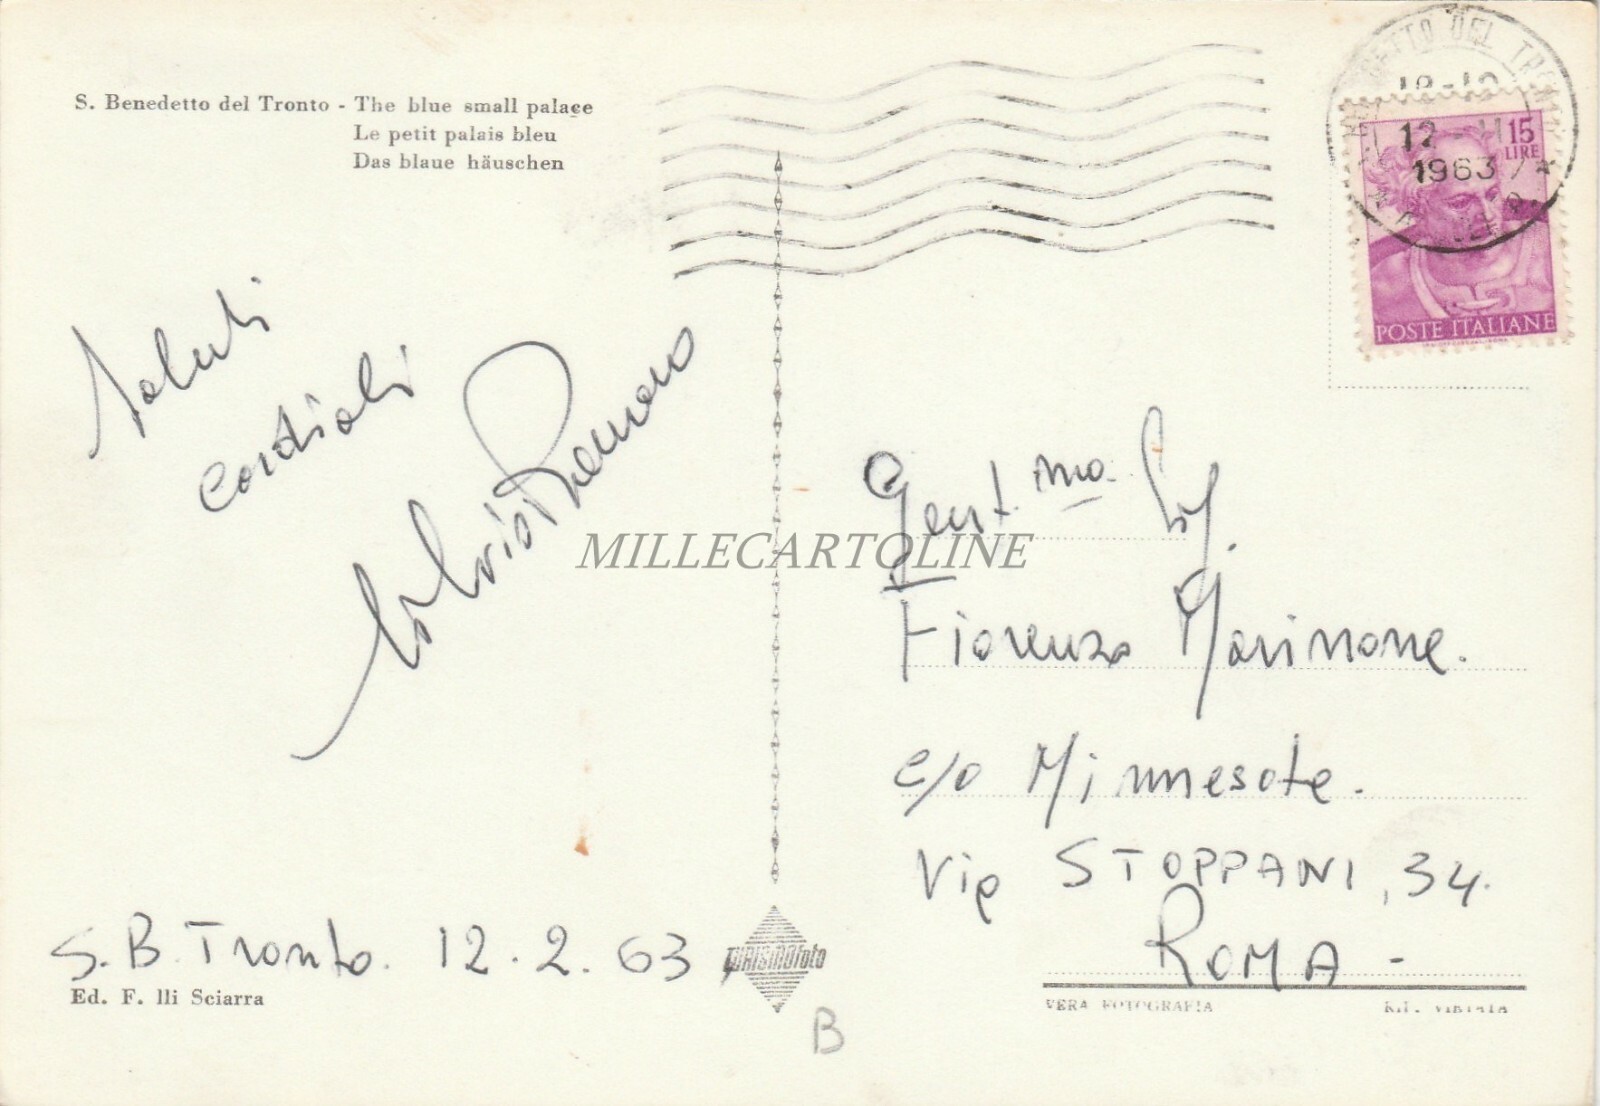 S. Benedetto del Tronto - The blue small palace
Le petit palais bleu
Das blaue häuschen
Saluti
cordiali
S. B. Tronto. 12.2.63
Ed. F. lli Sciarra
TURISMOfoto
B
MILLECARTOLINE
12 - II
1963
15
LIRE
POSTE ITALIANE
Gent.mo Sig.
Fiorenzo Marinone.
c/o Minnesota.
Via STOPPANI, 34.
ROMA -
VERA FOTOGRAFIA